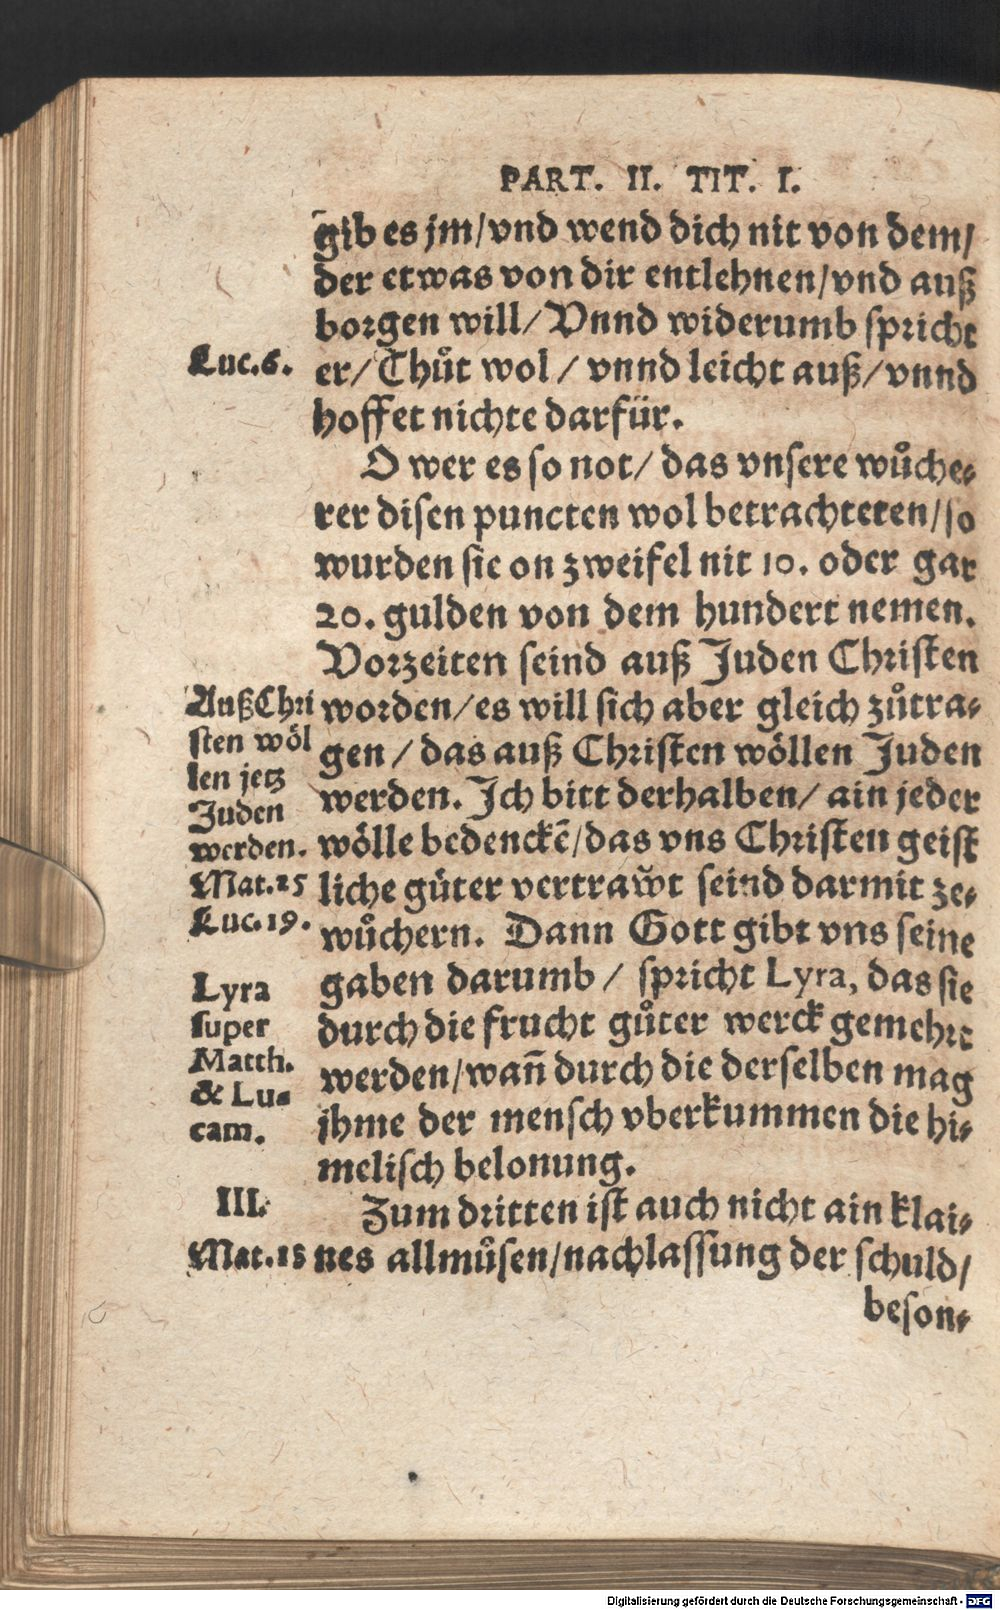 PART. II. TIT. I.
gib es jm/vnd wend dich nit von dem/
der etwas von dir entlehnen/vnd auß
borgen will/ Vnnd widerumb spricht
Luc.6.
er/ Thůt wol / vnnd leicht auß/ vnnd
hoffet nichts darfür.
O wer es so not/ das vnsere wůche-
rer disen puncten wol betrachteten/so
wurden sie on zweifel nit 10. oder gar
20. gulden von dem hundert nemen.
Vorzeiten seind auß Juden Christen
worden/es will sich aber gleich zůtra-
gen / das auß Christen wöllen Juden
werden. Ich bitt derhalben/ ain jeder
wölle bedenckē/das vns Christen geist
liche güter vertrawt seind darmit ze-
wůchern. Dann Gott gibt vns seine
gaben darumb / spricht Lyra, das sie
durch die frucht gůter werck gemehrt
werden/wañ durch die derselben mag
ihme der mensch vberkummen die hi-
melisch belonung.
AußChri
sten wöl
len jetz
Juden
werden.
Mat.25
Luc.19.
Lyra
super
Matth.
& Lu-
cam.
III.
Zum dritten ist auch nicht ain klai-
Mat.18
nes allmůsen/nachlassung der schuld/
beson-
Digitalisierung gefördert durch die Deutsche Forschungsgemeinschaft - DFG